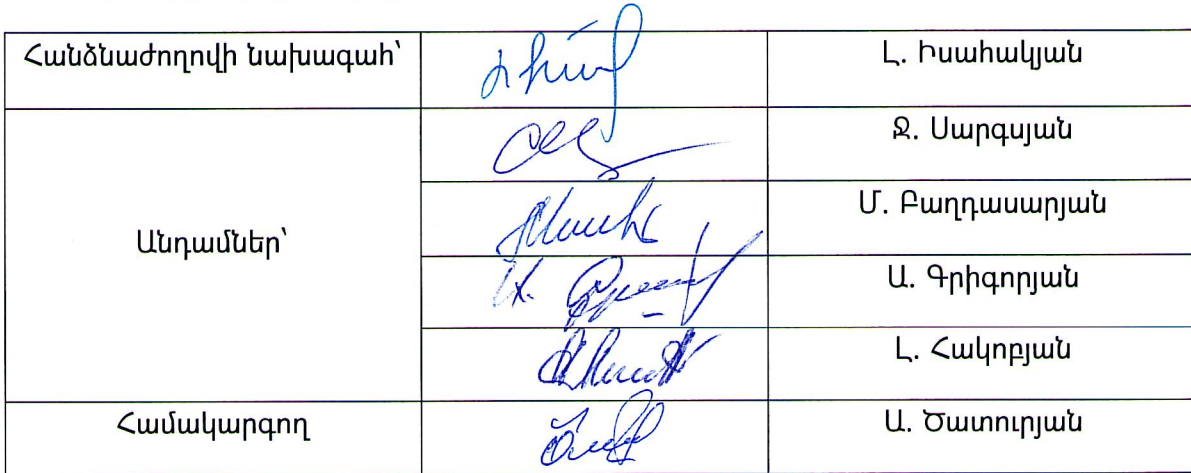 Հանձնաժողովի նախագահ՝
Լ. Իսահակյան
Անդամներ՝
Ջ. Սարգսյան
Մ. Բաղդասարյան
Ա. Գրիգորյան
Լ. Հակոբյան
Համակարգող
Ա. Ծատուրյան